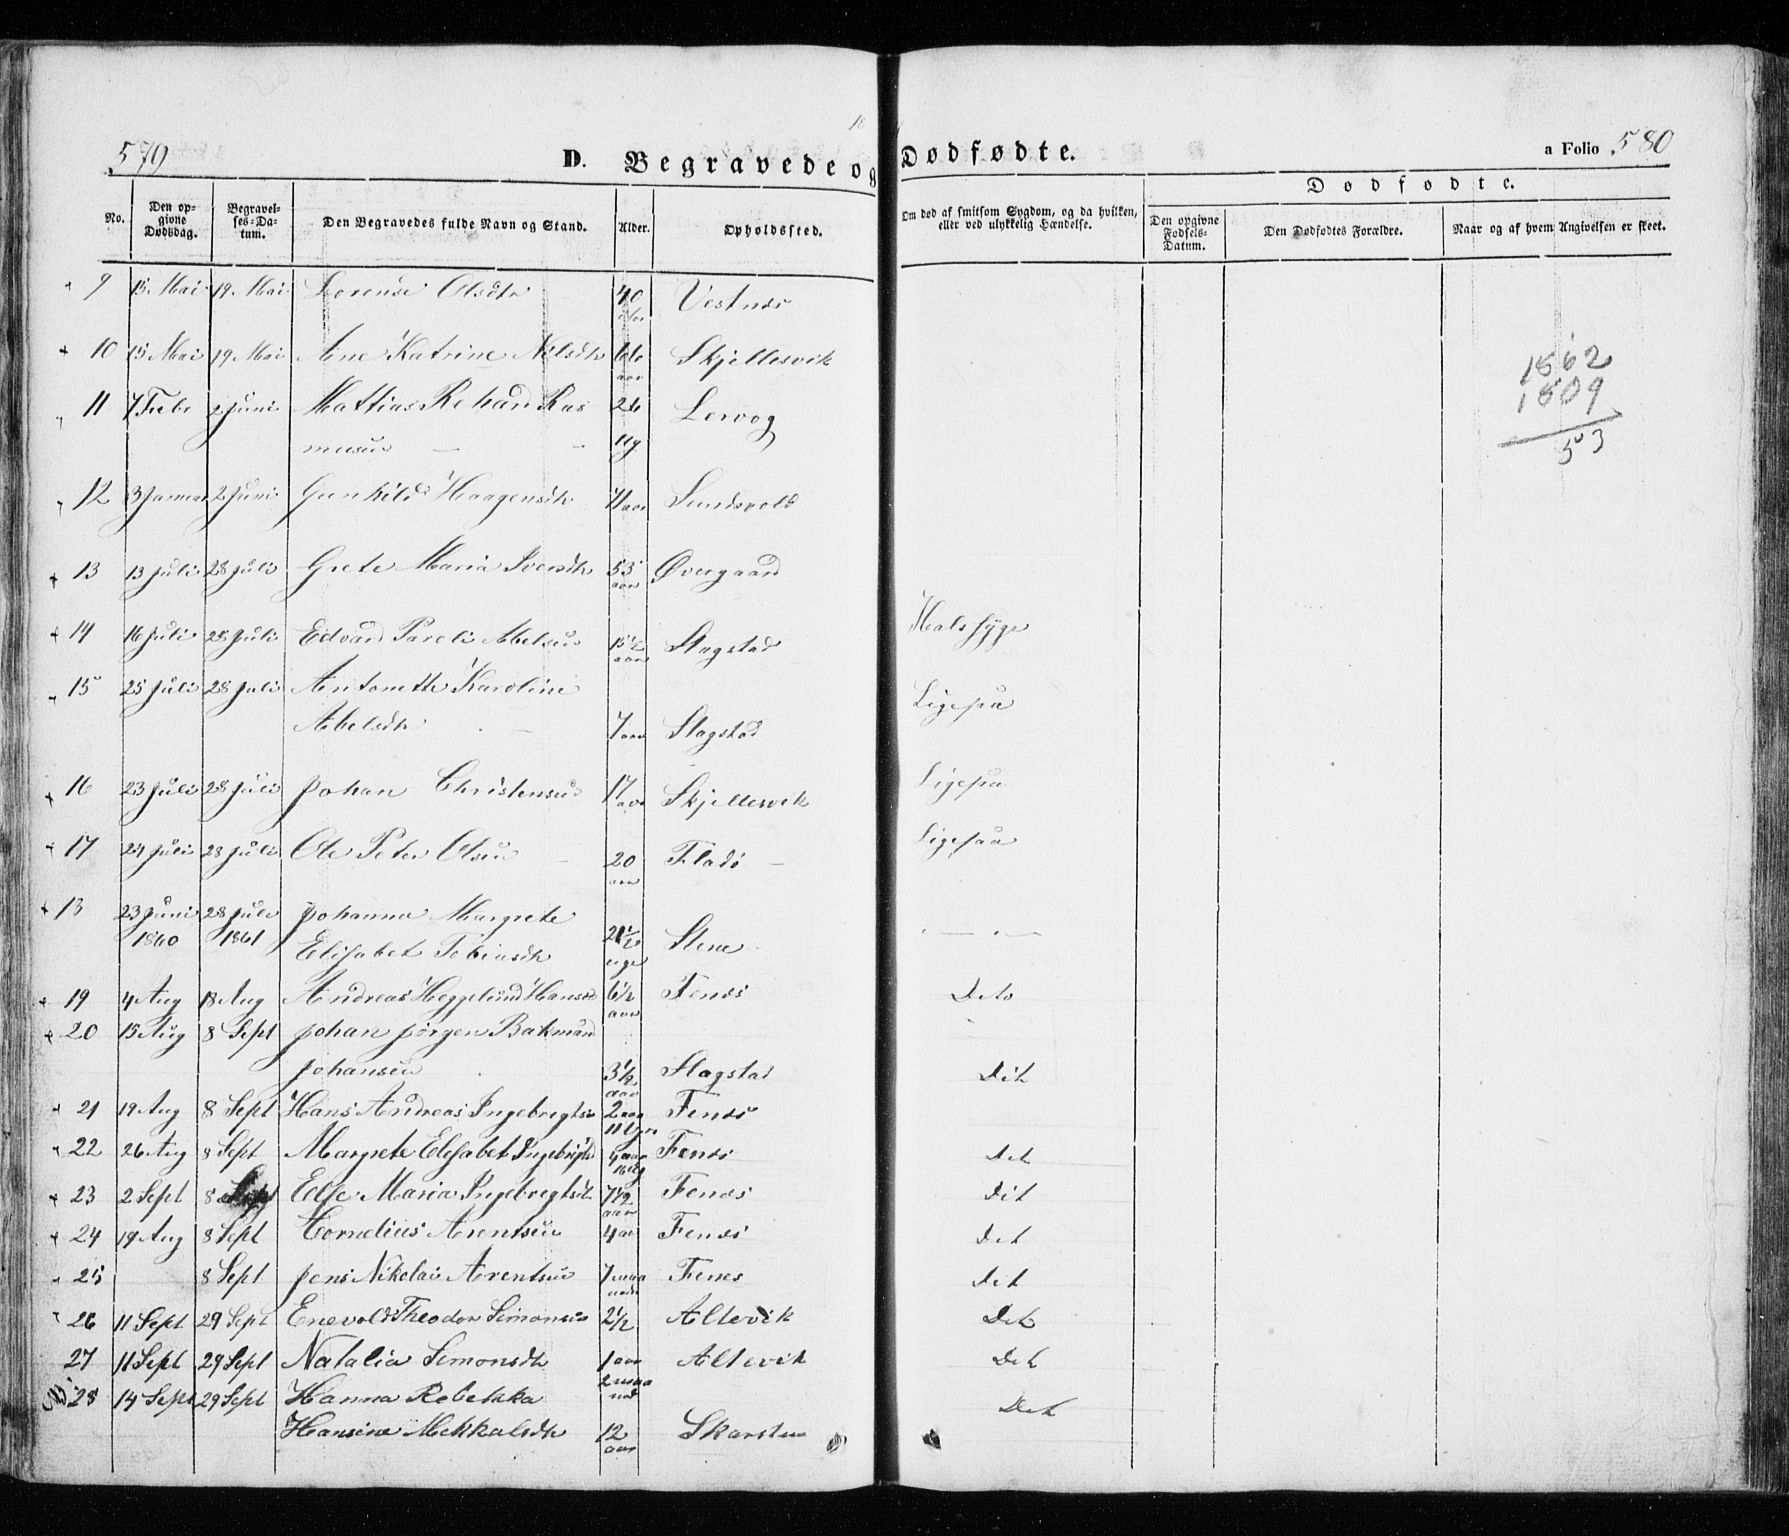 579
D. Begravede og Dødfødte.
a Folio 580
No.
Den opgivne Dødsdag.
Begravelses-Datum.
Den Begravedes fulde Navn og Stand.
Alder.
Opholdssted.
Om død af smitsom Sygdom, og da hvilken, eller ved ulykkelig Hændelse.
Dødfødte.
Den opgivne Fødsels-Datum.
Den Dødfødtes Forældre.
Naar og af hvem Angivelsen er skeet.
9 15 Mai 19 Mai Lorense Olsdtr 40 aar Vestnes
10 15 Mai 19 Mai Ane Katrine Nilsdtr 66 aar Skjellesvik
11 7 Febr 2 Juni Mattias Rikard Ras 26
musen — ug Lervog
12 3 Januar 2 Juni Gunhild Haagensdtr 71 aar Sundsvold
13 13 Juli 28 Juli Grete Maria Iversdtr 53 aar Øvergaard
14 16 Juli 28 Juli Edvard Pareli Abelsen 15½ aar Slagstad Halssyge
15 25 Juli 28 Juli Antonette Karoline
Abelsdtr 7 aar Slagstad Ligesaa
16 23 Juli 28 Juli Johan Christensen 17 aar Skjellesvik Ligesaa
17 24 Juli 28 Juli Ole Peter Olsen 20 aar Fladø Ligesaa
18 23 Juni 28 Juli Johanna Margrete
1860 1861 Elisabet Tobiasdtr 21½ uge Stene — — —
19 4 Aug 18 Aug Andreas Heggelund Hansen 6½ aar Fenes Deto
20 15 Aug 8 Sept Johan Jørgen Bakman
Johansen 3½ aar Slagstad Det
21 19 Aug 8 Sept Hans Andreas Ingebregtsen 2 aar 11 Uger Fenes
22 26 Aug 8 Sept Margrete Elisabet Ingebrigtsd aar Fenes Det
23 2 Sept 8 Sept Else Maria Ingebregtsdt 7½ aar Fenes Det
24 19 Aug 8 Sept Cornelius Arentsen 4 aar Fenes Det
25 8 Sept Jens Nikolai Arentsen 7 maaneder Fenes Det
26 11 Sept 29 Sept Enevold Theodor Simonsen 2½ Altevik Det
27 11 Sept 29 Sept Natalia Simonsdtr 1 aar 2 maaned Altevik Det
28 14 Sept 29 Sept Hanna Rebekka
Hansine Mekkalsdtr 12 aar Skarsten Det
1862
1809
53